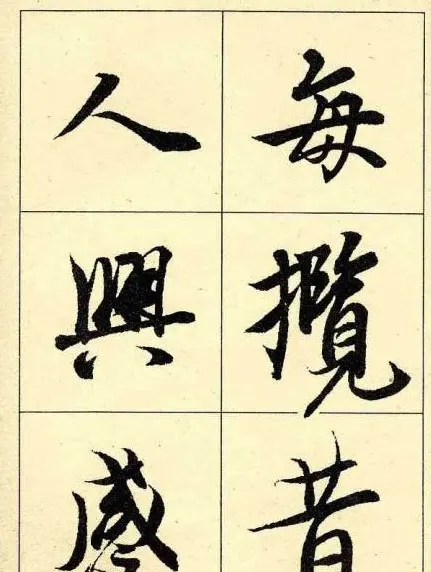 每攬昔
人興感